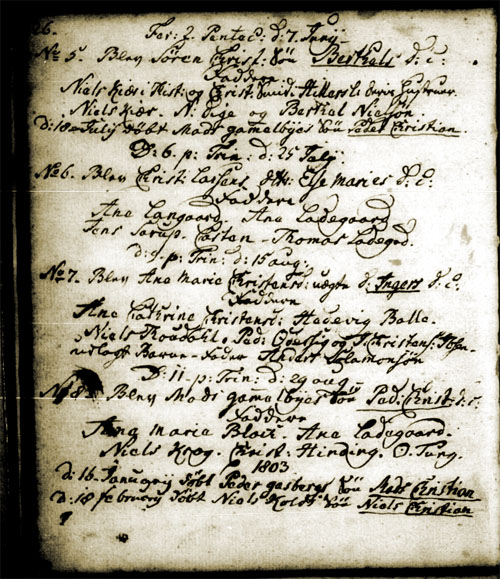 26.
Fer: 2. Pentec: d: 7. Junij
No 5. Blev Søren Christ: Søn Berthels d: c:
Faddere
Niels Kiær i Hist: og Christ: Smid: Hillersle deres Hustruer.
Niels Kiær. N: Enge og Berthel Nielsøn
d: 18 July døbt Mads gamelbyes Søn Peder Christian.
D: 6. p: Trin: d: 25 July.
No 6. Blev Christ: Lassens dtr: Else Maries d: c:
Faddere
Ana Langaard. Ana Ladegaard
Jens Sarup. Casten - Thomas Ladegrd.
d: 9. p: Trin: d: 15 aug:
No 7. Blev Ana Maria Christens: uægte d: Ingers d: c:
Faddere
Ana Cathrine Christens: Hedevig Balle.
Niels Throudahl. Ped: og J: Christens:
udlagt Barne-Fader Anders Salamonsøn
D: 11. p: Trin: d: 29 aug
No 8. Blev Mads gamelbyes Søn Ped: Christ: d: c.
Faddere
Ana Maria Black. Ana Ladegaard.
Niels Krog. Christ: Hinding. O: Tung.
1803
d: 16. Januarij døbt Peder gasbergs Søn Mads Christian
d: 18 february døbt Niels Holdts Søn Niels Christian